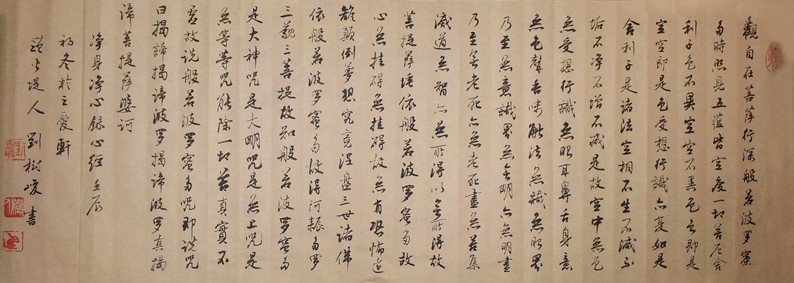 觀自在菩薩行深般若波罗蜜
多時照見五蘊皆空度一切苦厄舍
利子色不異空空不異色色即是
空空即是色受想行識亦复如是
舍利子是诸法空相不生不滅不
垢不净不增不減是故空中無色
無受想行識無眼耳鼻舌身意
無色聲香味触法無識無眼界
乃至無意識界無無明亦無無明盡
乃至無老死亦無老死盡無苦集
滅道無智亦無所得以無所得故
菩提薩埵依般若波罗蜜多故
心無挂碍無挂碍故無有恐怖遠
離顛倒夢想究竟涅盘三世诸佛
依般若波罗蜜多故得阿耨多罗
三藐三菩提故知般若波罗蜜多
是大神咒是大明咒是無上咒是
無等等咒能除一切苦真實不
虚故说般若波罗蜜多咒即说咒
曰揭諦揭諦波罗揭諦波罗揭
諦菩提薩婆訶
净身净心錄心經壬辰
初冬於三愛軒
堤人劉樹峻書